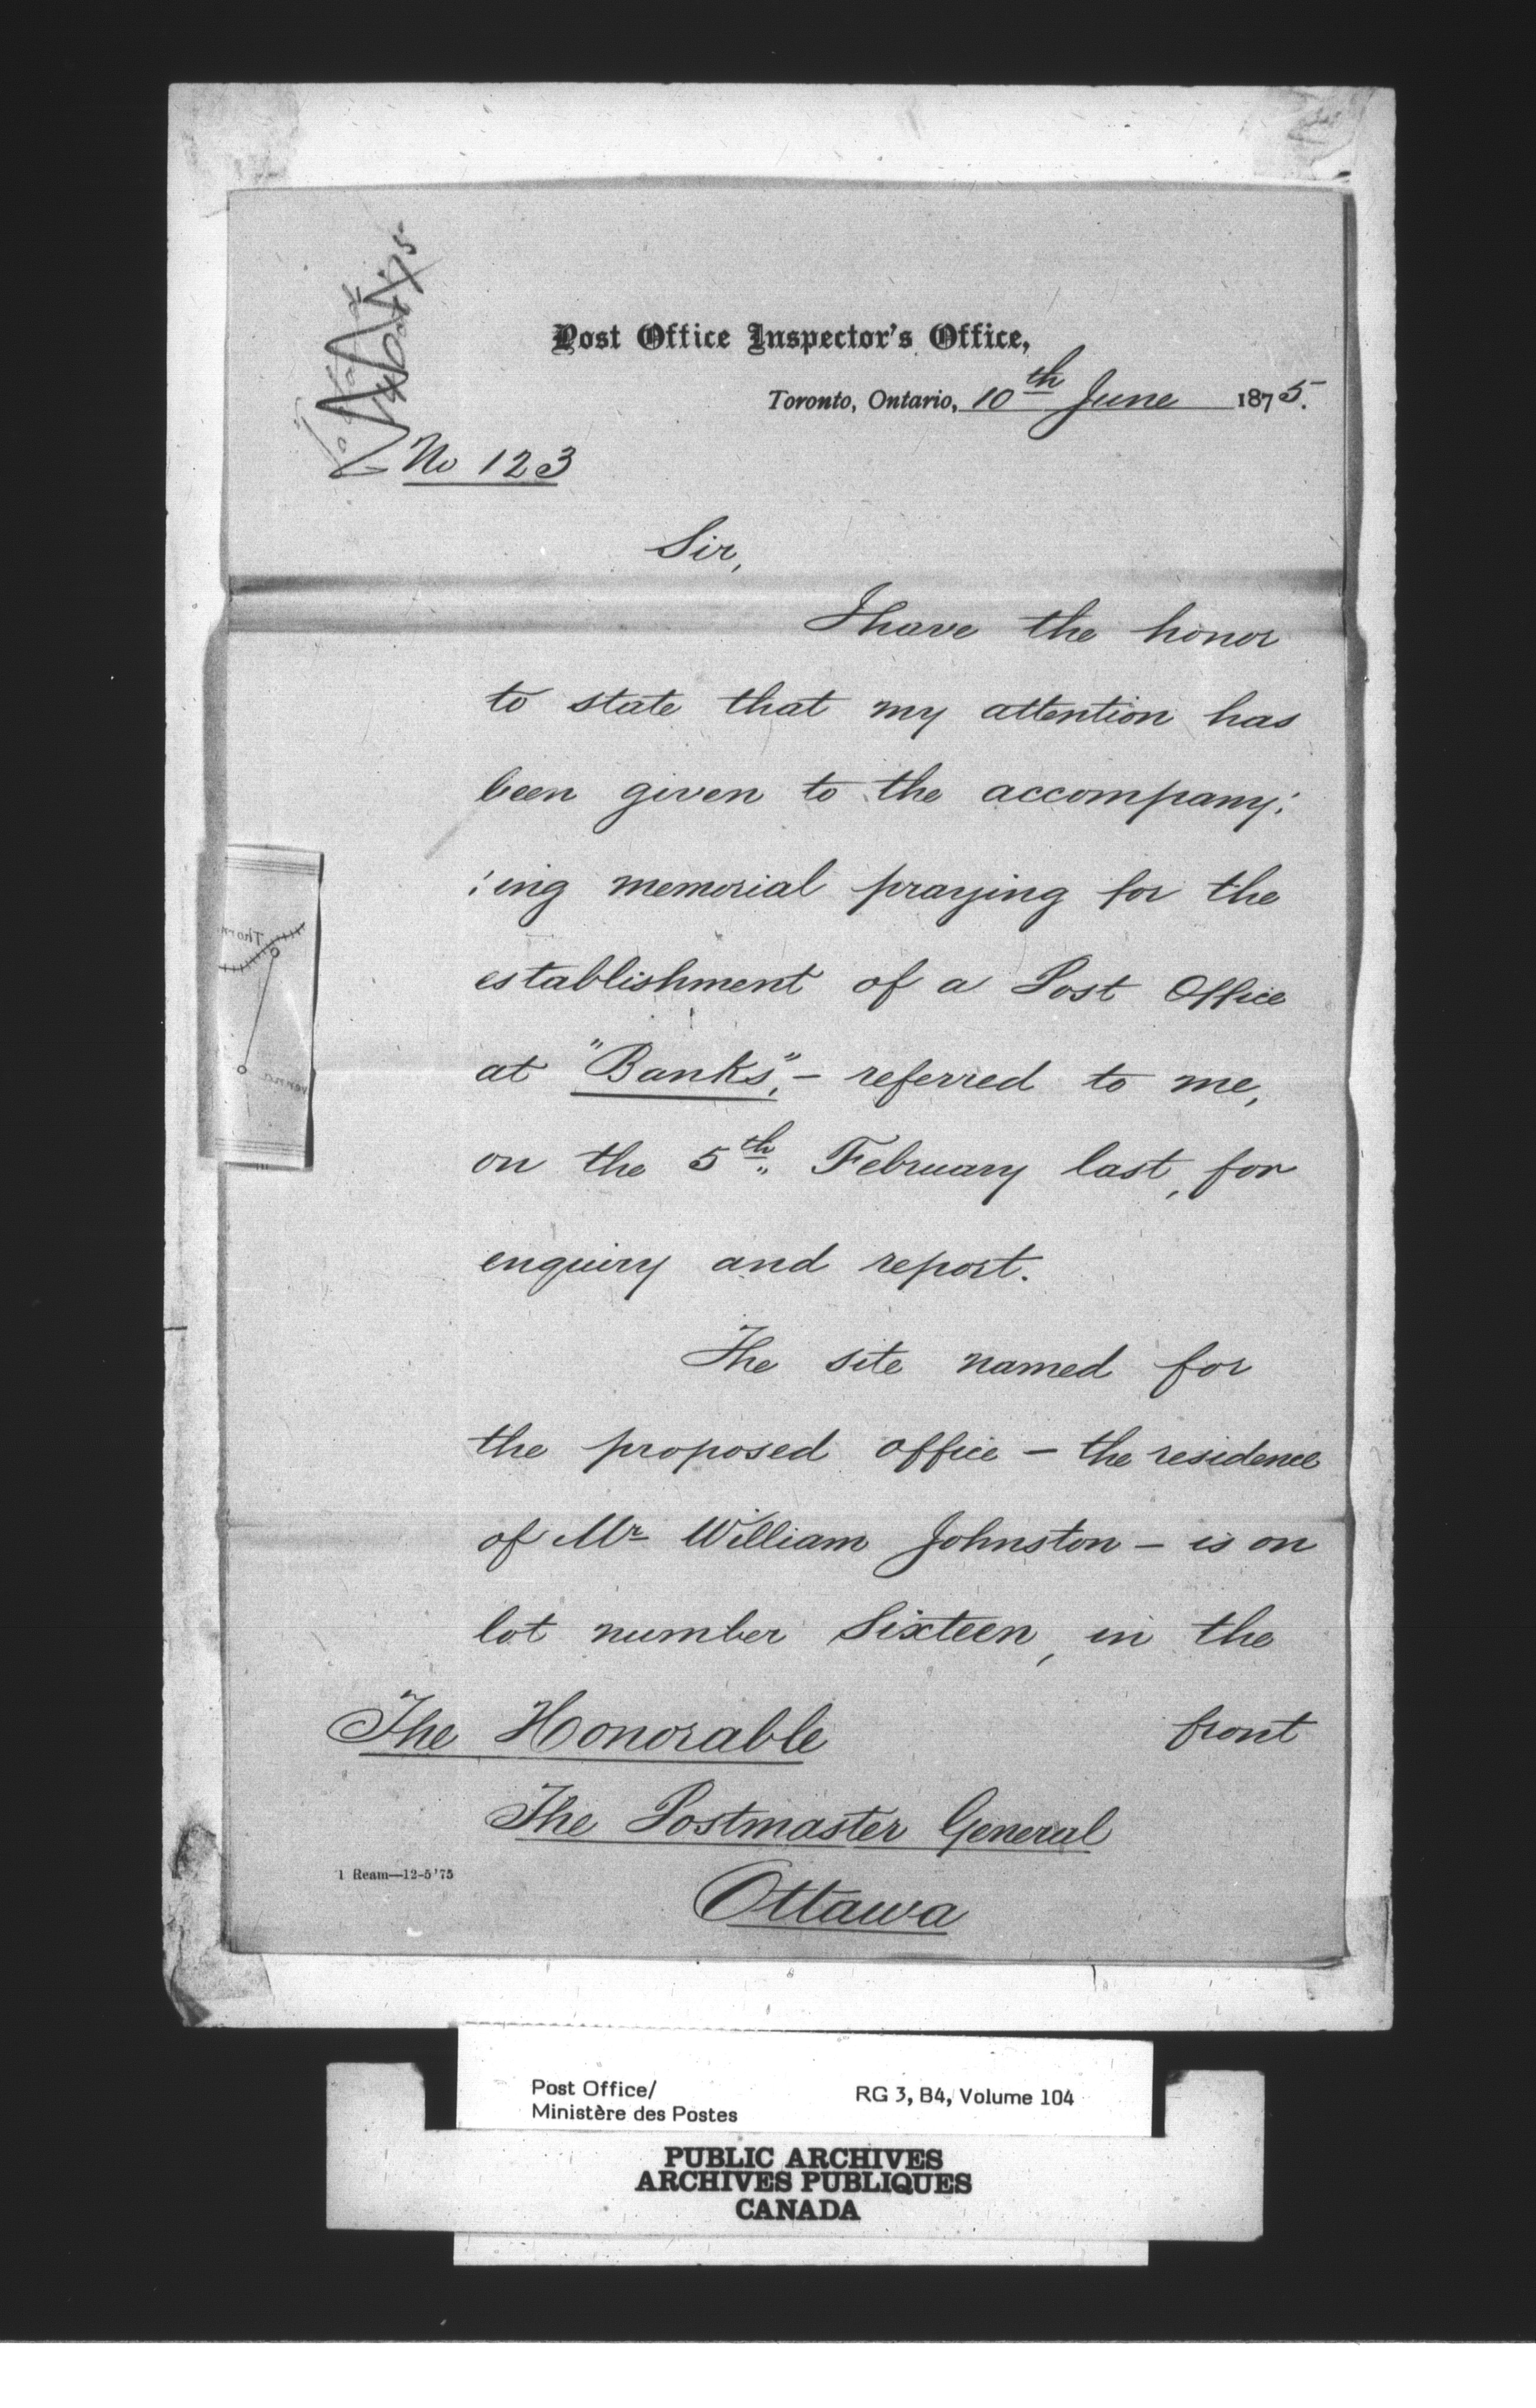 Post Office Inspector's Office,
Toronto, Ontario, 10th June 1875.
No 123
Sir,
I have the honor
to state that my attention has
been given to the accompany:
:ing memorial praying for the
establishment of a Post Office
at "Banks", — referred to me,
on the 5th February last, for
enquiry and report.
The site named for
the proposed office — the residence
of Mr William Johnston — is on
lot number Sixteen, in the
front
The Honorable
The Postmaster General
Ottawa
1 Ream—12-5'75
Post Office/
Ministère des Postes
RG 3, B4, Volume 104
PUBLIC ARCHIVES
ARCHIVES PUBLIQUES
CANADA